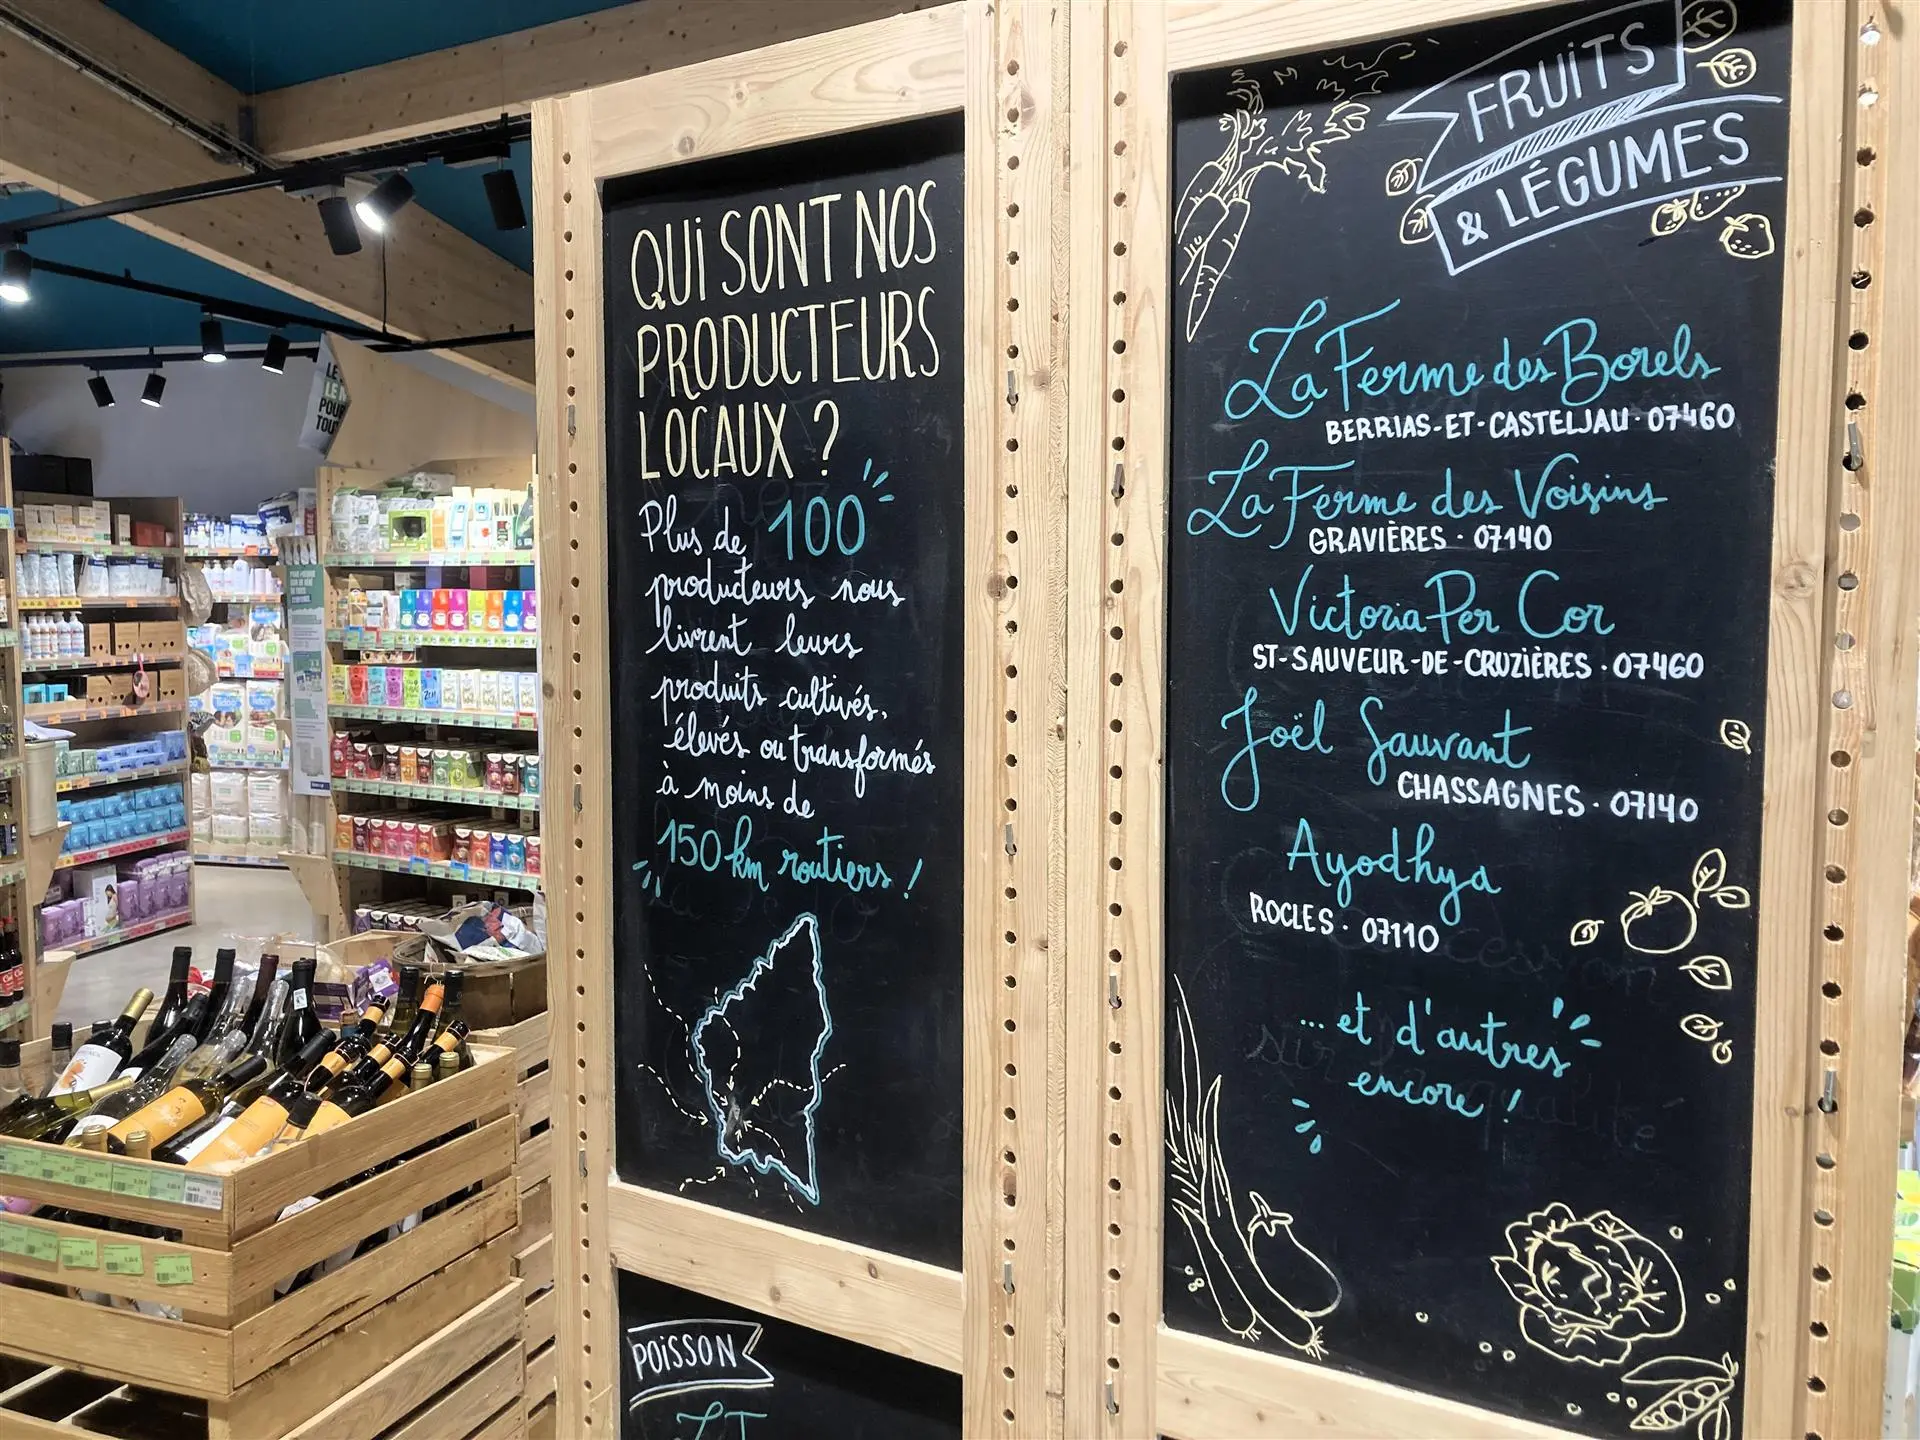 QUI SONT NOS
PRODUCTEURS
LOCAUX ?
Plus de 100
producteurs nous
livrent leurs
produits cultivés,
élevés ou transformés
à moins de
150 km routiers !
POISSON
FRUITS
& LÉGUMES
La Ferme des Borels
BERRIAS-ET-CASTELJAU · 07460
La Ferme des Voisins
GRAVIÈRES · 07140
Victoria Per Cor
ST-SAUVEUR-DE-CRUZIÈRES · 07460
Joël Sauvant
CHASSAGNES · 07140
Ayodhya
ROCLES · 07110
... et d'autres
encore !